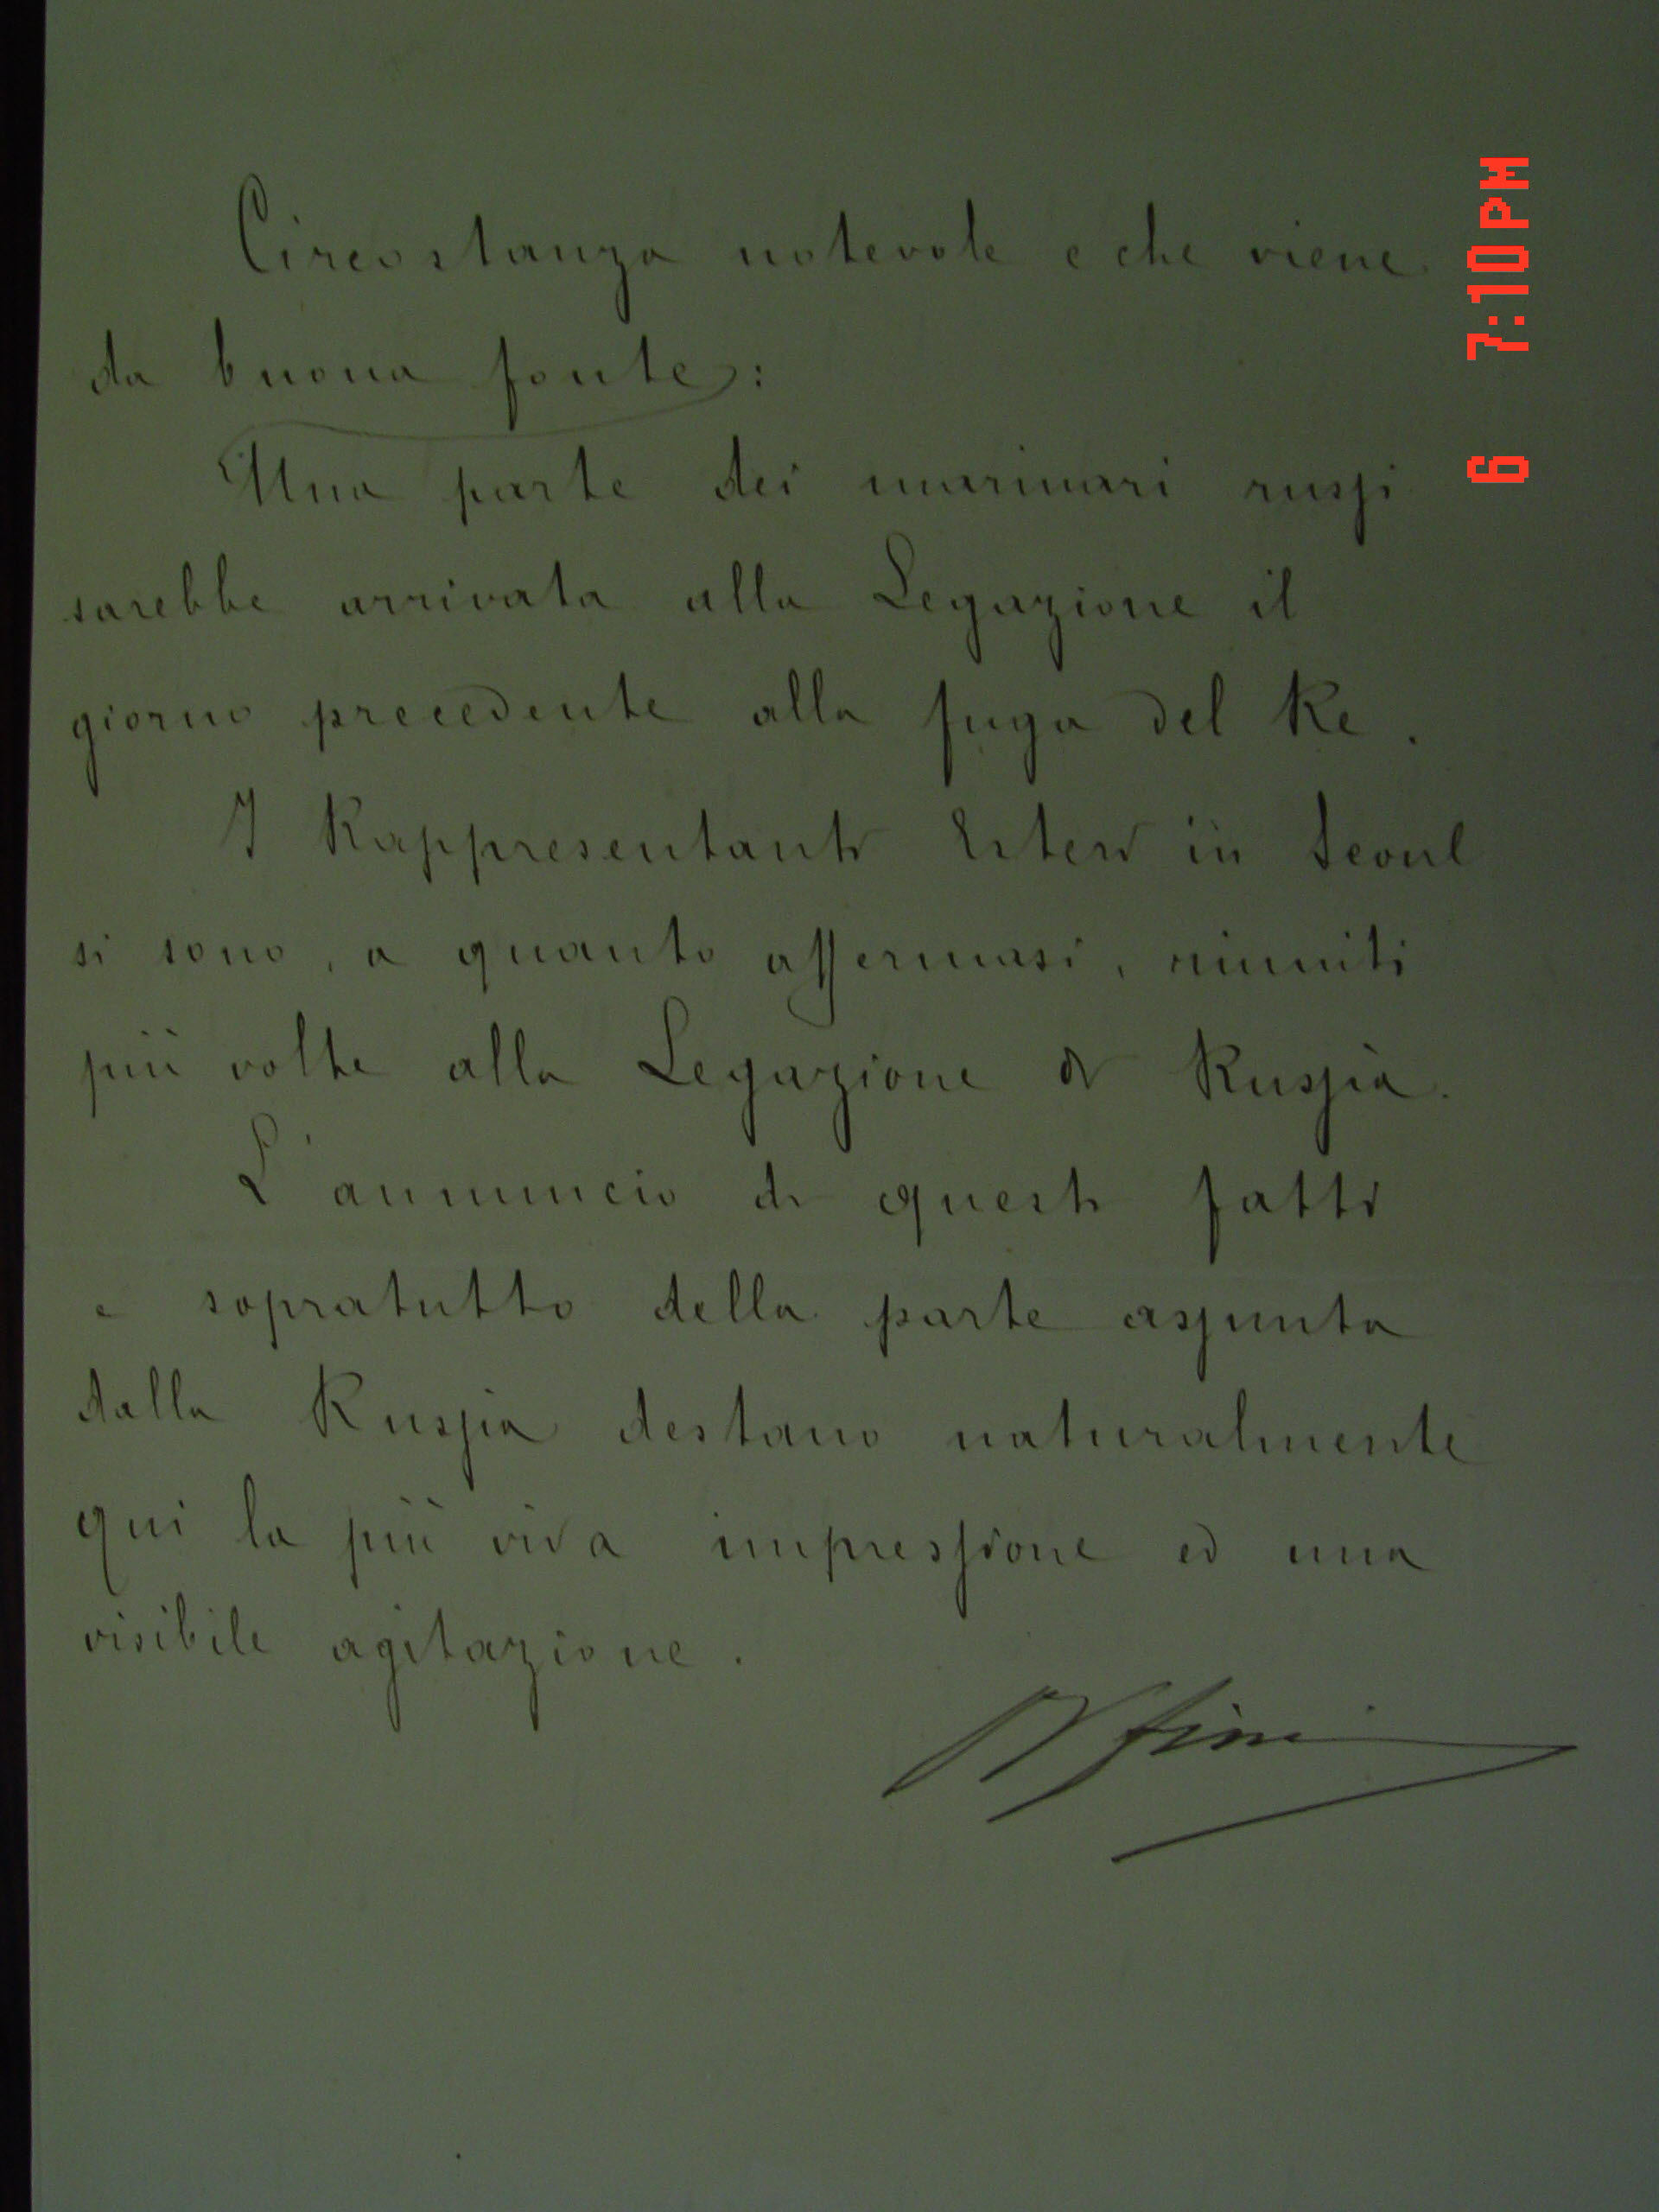 Circostanza notevole e che viene
da buona fonte:
Una parte dei marinari russi
sarebbe arrivata alla Legazione il
giorno precedente alla fuga del Re.
I Rappresentanti Esteri in Seoul
si sono, a quanto affermasi, riuniti
più volte alla Legazione di Russia.
L'annuncio di questi fatti
e sopratutto della parte assunta
dalla Russia destano naturalmente
qui la più viva impressione ed una
visibile agitazione.
6 7:10PM